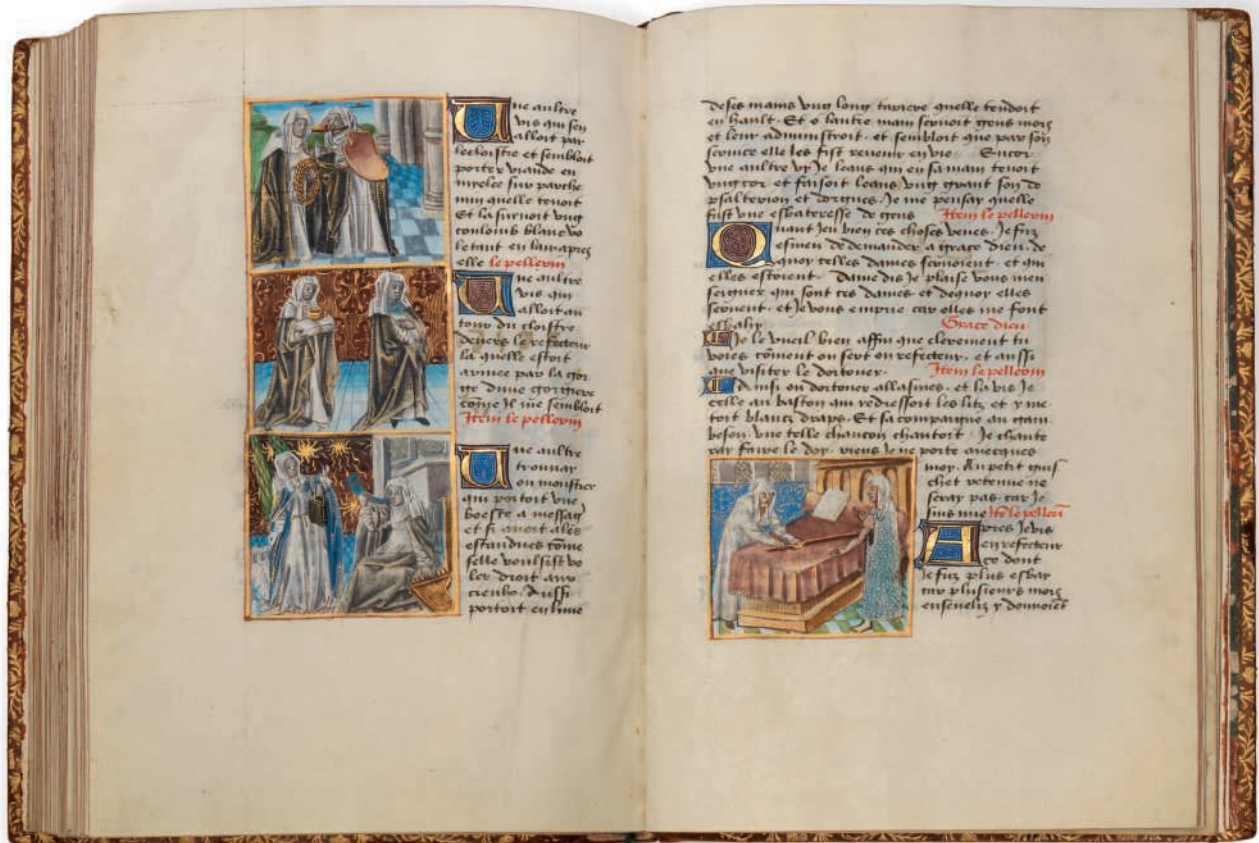 Une aultre
vis qui sen
alloit par
le cloistre et sembloit
porter viande en
myelee sur parche
min quelle tenoit
Et la suivoit ung
coulomb blanc vo
letant en lair apres
elle le pellerin
Une aultre
vis qui
alloit au
tour du cloistre
devers le refecteur
la quelle estoit
armee par la gor
ge dune gorgiere
come Il me sembloit
Item le pellerin
Une aultre
trouvay
ou moustier
qui portoit une
boeste a messag
et si avoit ales
estandues come
selle voulsist vo
ler droit aux
cieulx. Aussi
portoit en lune
de ses mains ung long tariere quelle tendoit
en hault. Et o lautre main servoit gens mors
et leur administroit. et sembloit que par son
service elle les fist revenir en vie. Encor
une aultre vy Je leans qui en sa main tenoit
ung cor et faisoit leans ung grant son de
psalterion et dorgues. Je me pensay quelle
fust une esbateresse de gens Item le pellerin
Quant Jeu bien ces choses veues. Je fuz
esmeu de demander a grace dieu. de
quoy celles dames servoient. et qui
elles estoient. Dame dis Je plaise vous men
seigner qui sont ces dames et dequoy elles
servent. et Je vous emprie car elles me font
esbahir Grace dieu
Je le vueil bien affin que clerement tu
voies coment on sert on refecteur. et aussi
que visiter le dortouer. Item le pellerin
Ainsi ou dortouer allasmes. et la vis Je
celle au baston qui redressoit les litz et y me
toit blancz draps. Et sa compaigne au gam
beson. une telle chancon chantoit. Je chante
ray faire le doy. riens Je ne porte avecques
moy. Au petit guis
chet retenue ne
seray pas. car Je
suis nue Ite le pelleri
Apres Je vis
en refecteur
ce dont
Je fuz plus esbay
car plusieurs mors
enseveliz y donnoiet